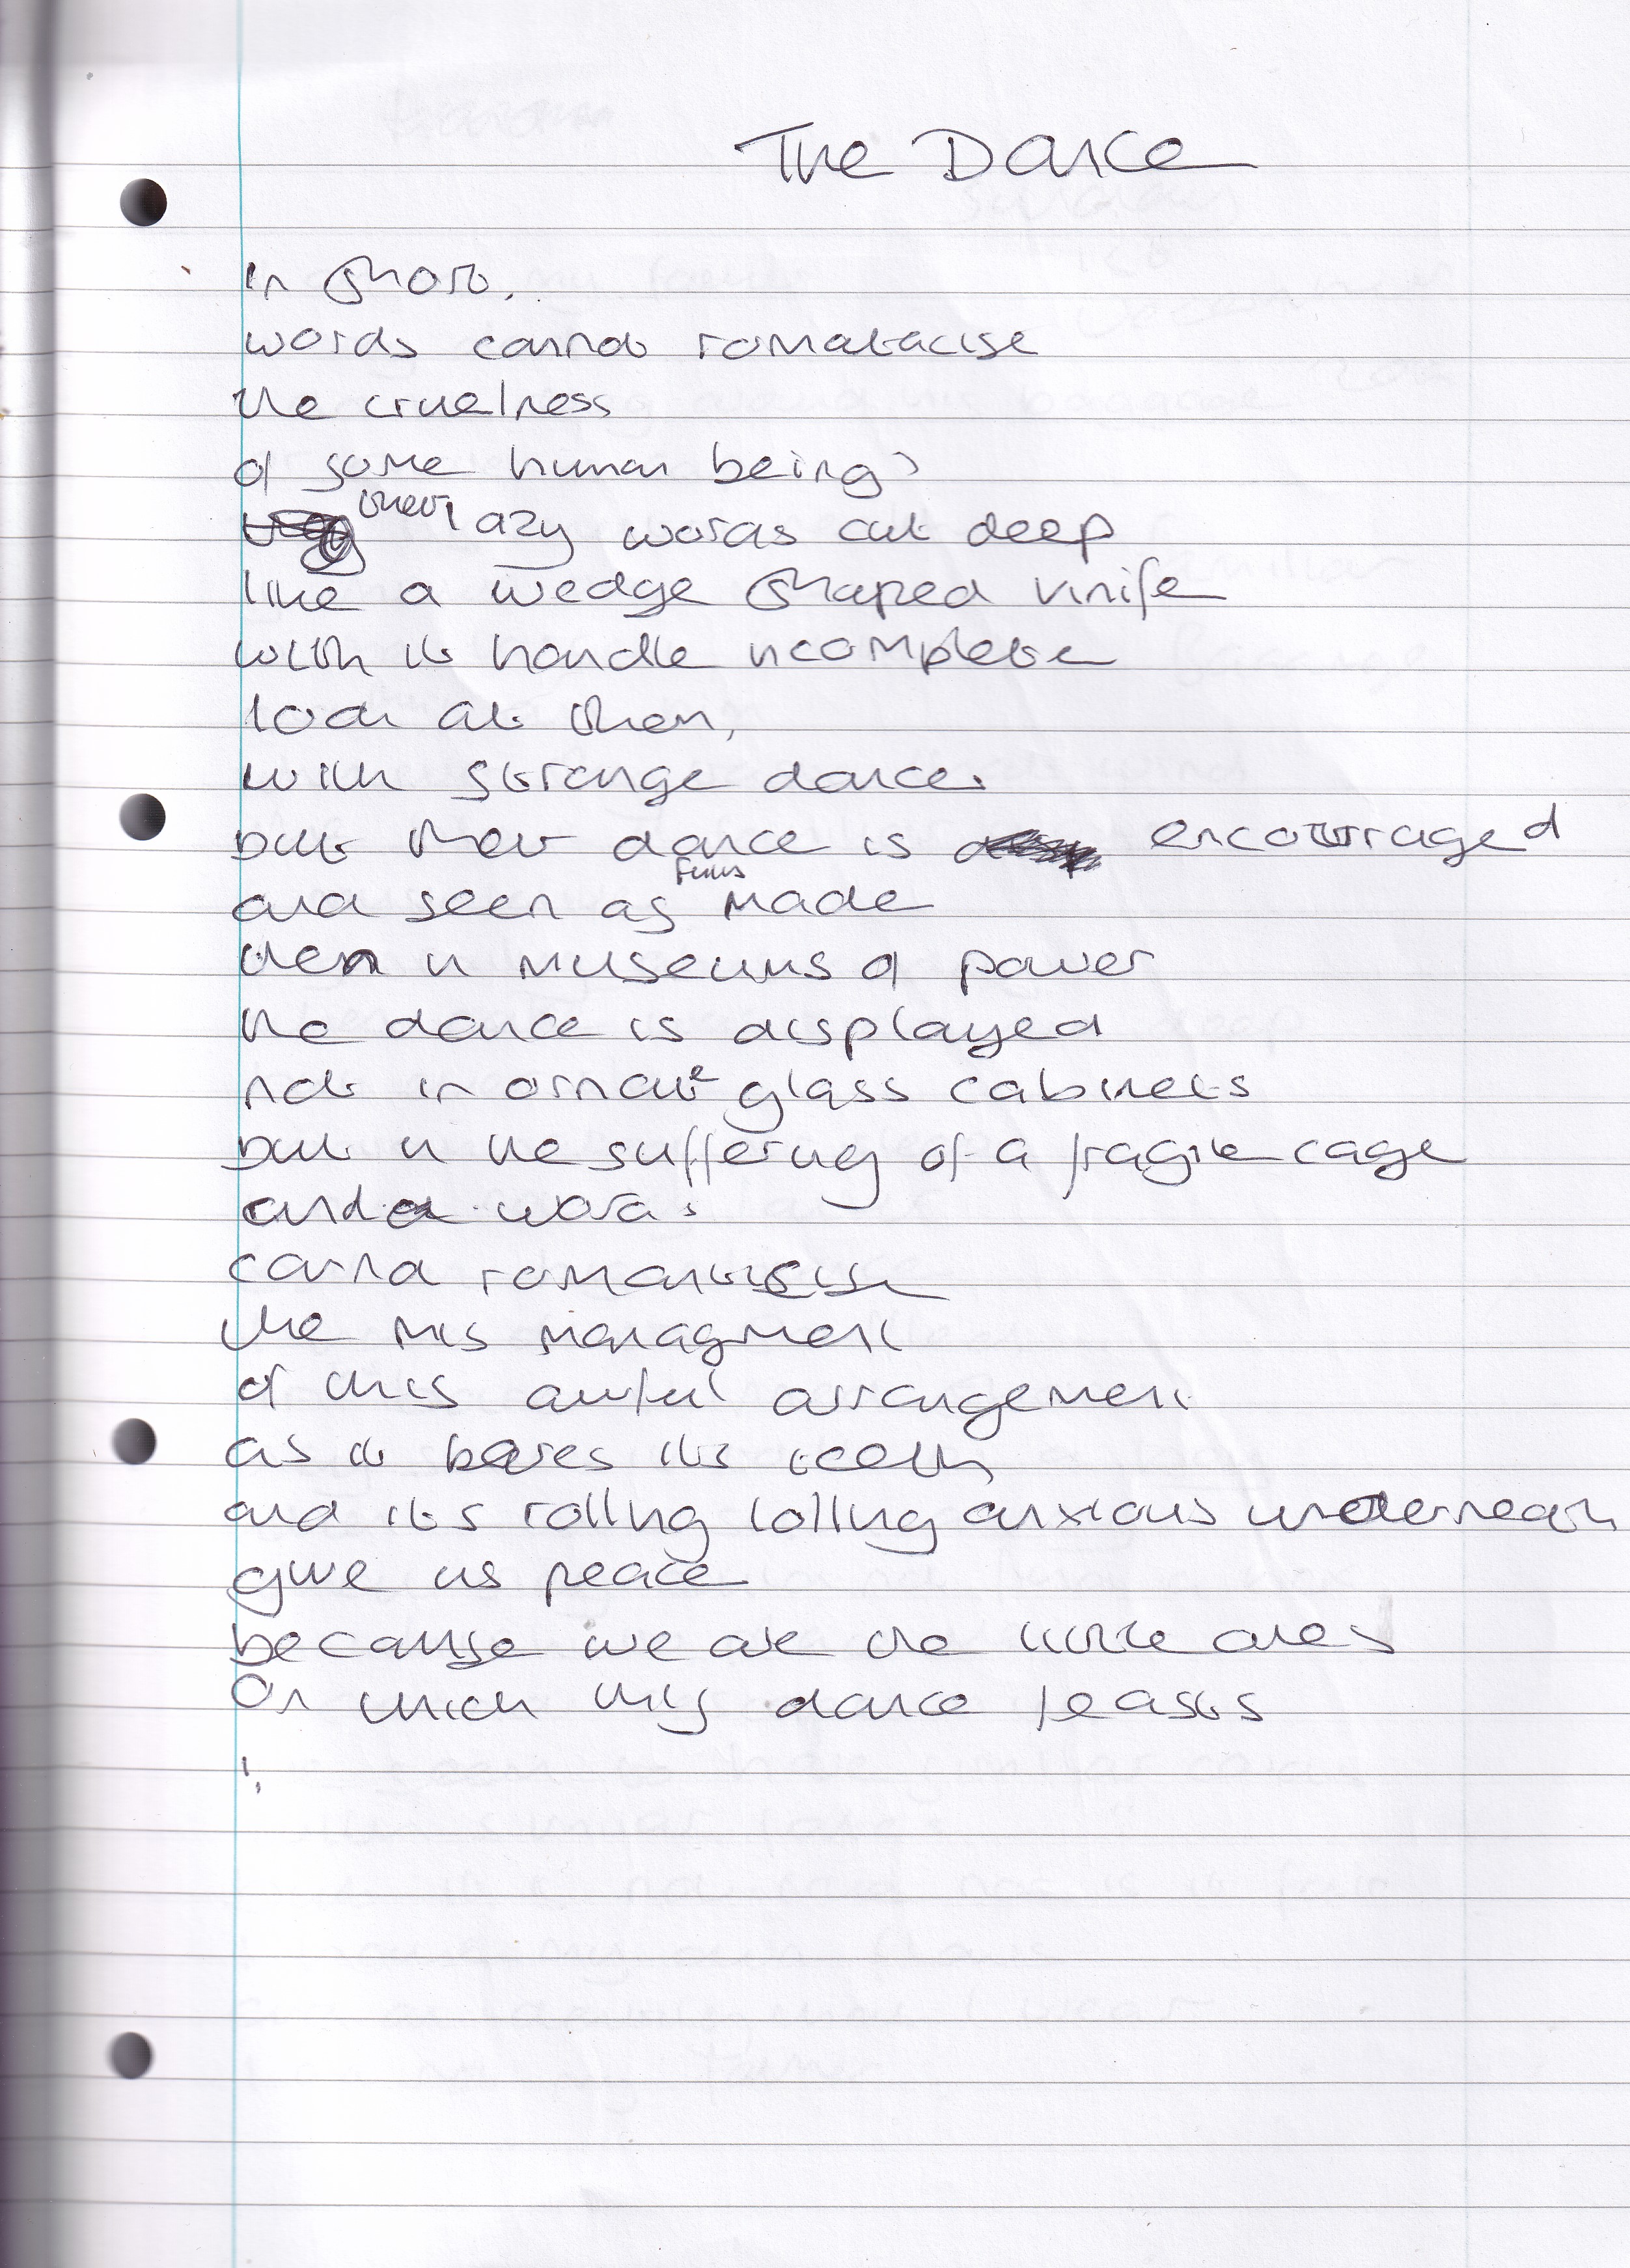 The Dance
In short,
words cannot romatacise
the cruelness
of some human beings
their lazy words cut deep
like a wedge shaped knife
with its handle incomplete
look at them,
with strange dance.
but their dance is encouraged
and seen as made
then in museums of power
the dance is displayed
not in ornate glass cabinets
but in the suffering of a fragile cage
and words
cannot romanticise
the mis managment
of this awful arrangement
as it bares its teeth
and its rolling lolling anxious underneath
give us peace
because we are the little ones
On which this dance feasts